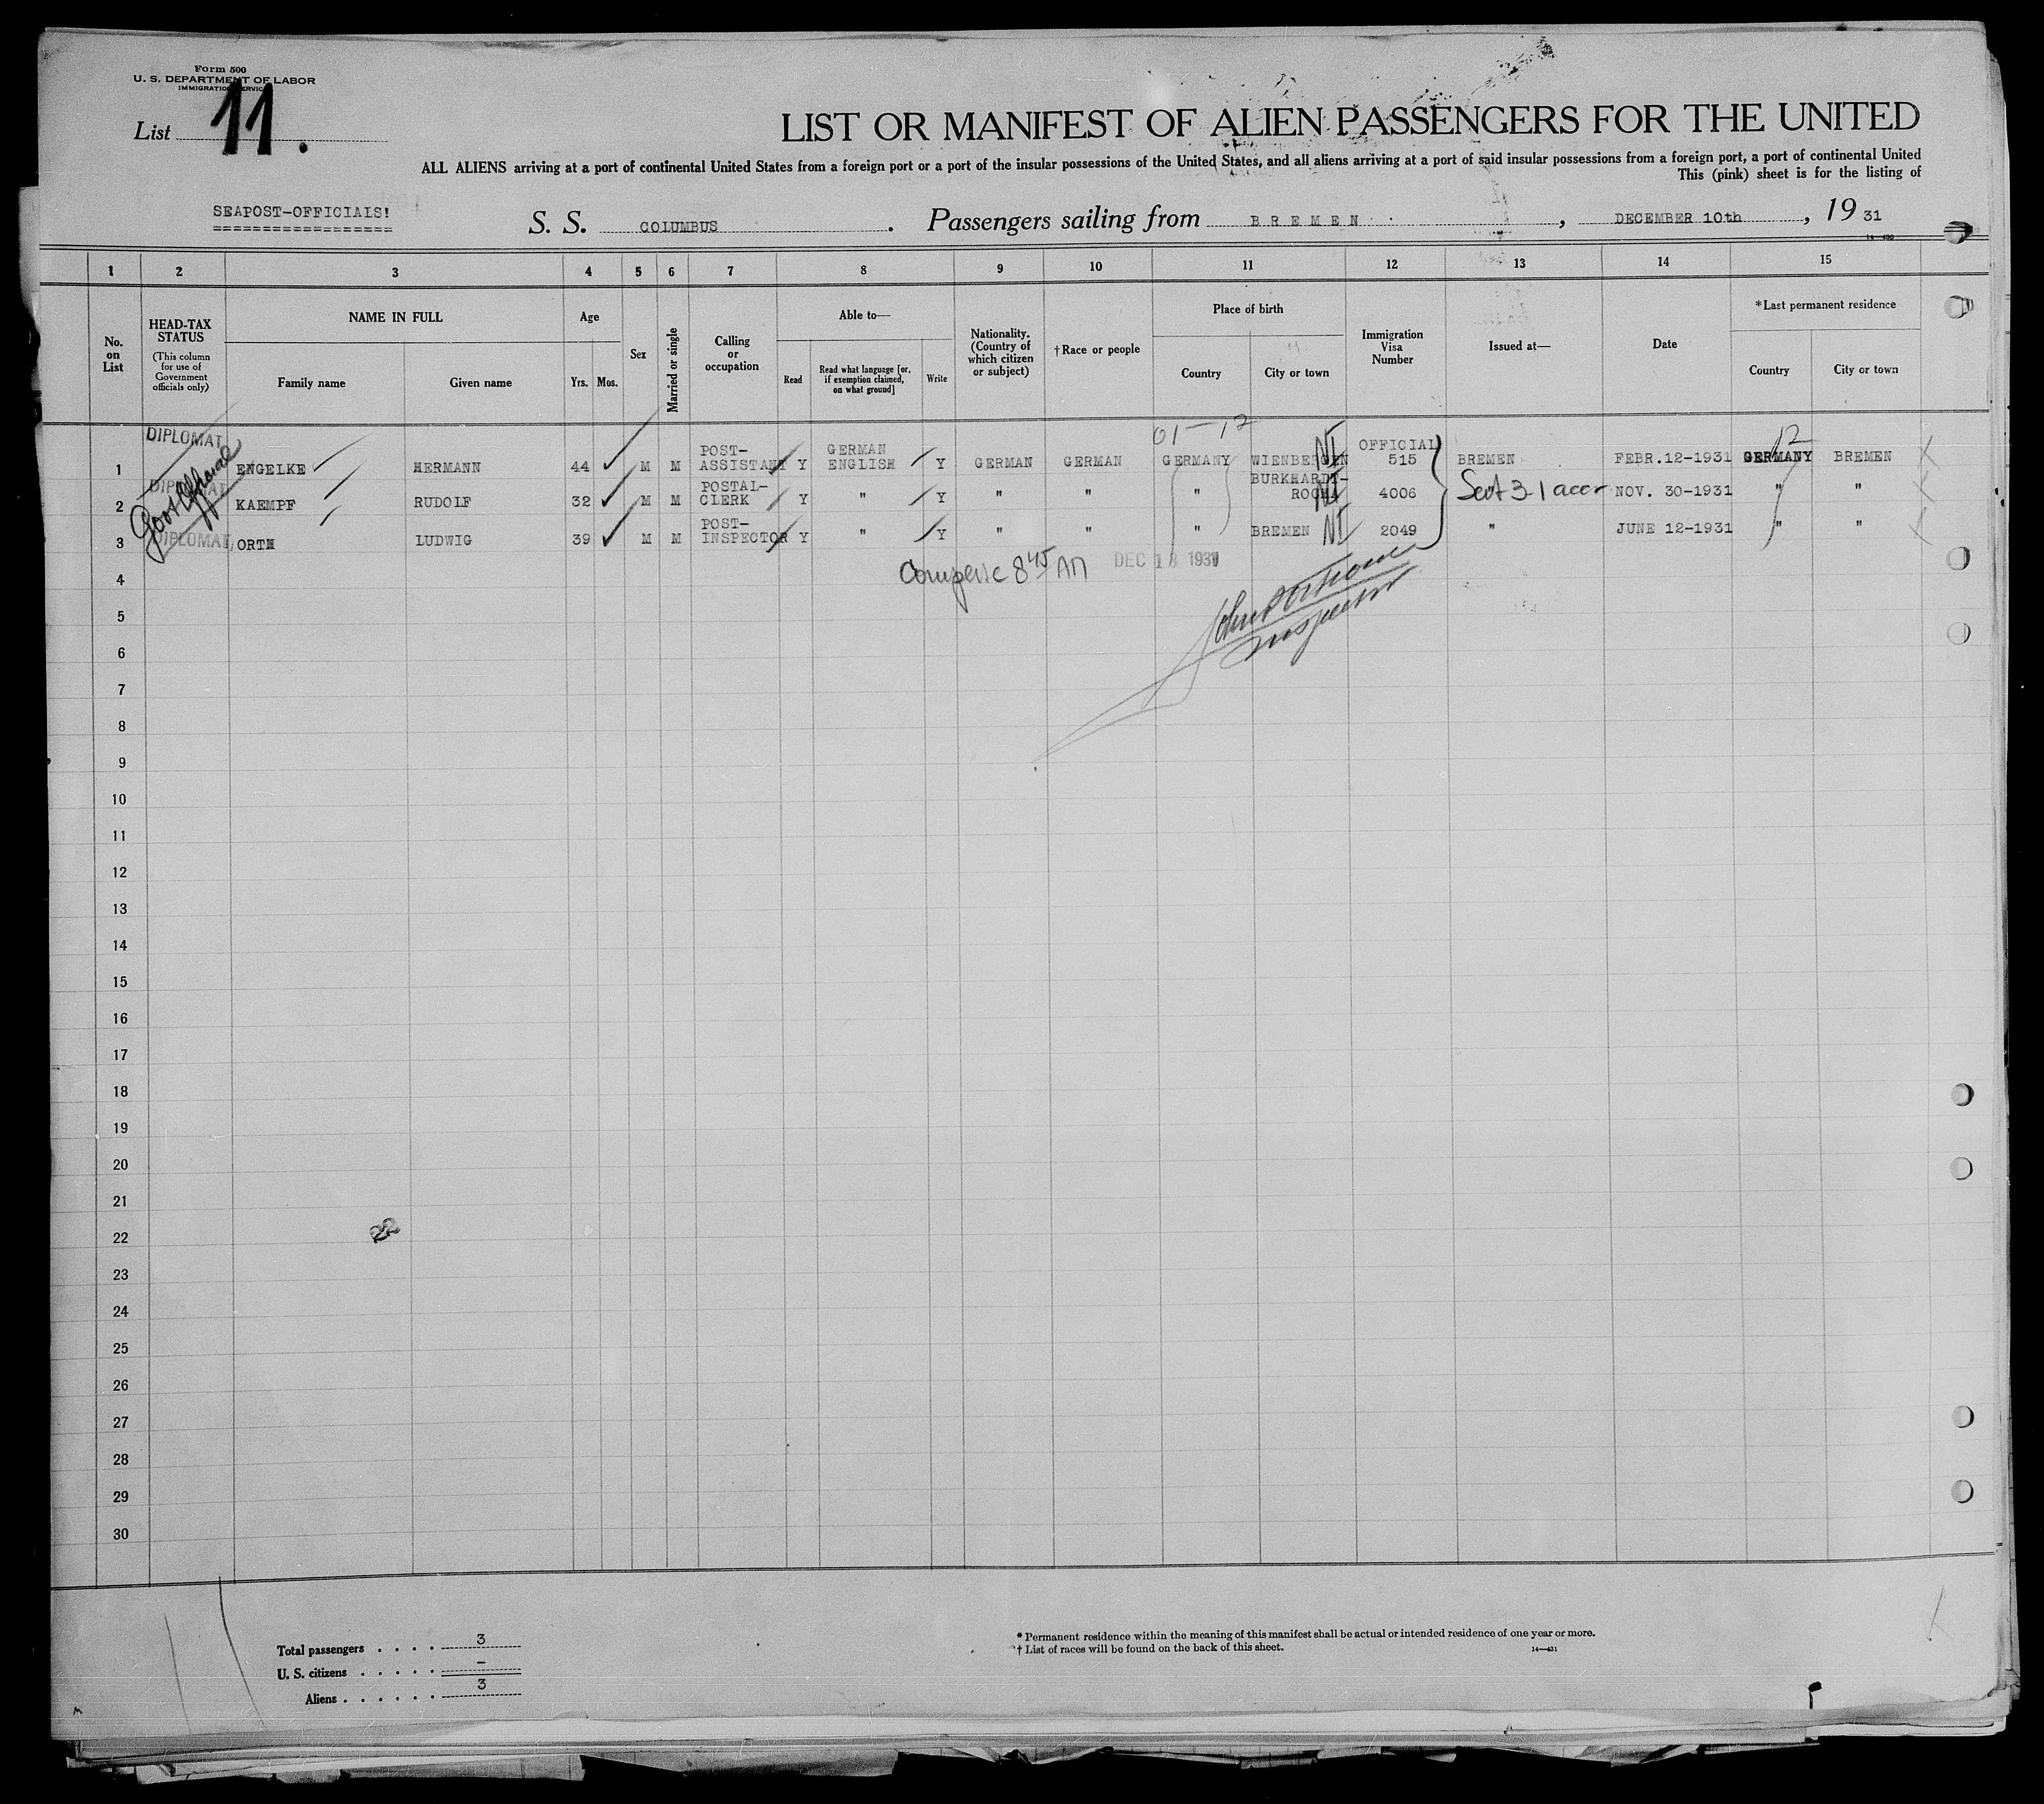 Form 500
U. S. DEPARTMENT OF LABOR
IMMIGRATION SERVICE
List 11.
LIST OR MANIFEST OF ALIEN PASSENGERS FOR THE UNITED
ALL ALIENS arriving at a port of continental United States from a foreign port or a port of the insular possessions of the United States, and all aliens arriving at a port of said insular possessions from a foreign port, a port of continental United
This (pink) sheet is for the listing of
SEAPOST-OFFICIALS!
S. S. COLUMBUS. Passengers sailing from BREMEN, DECEMBER 10th, 19 31
14-430
1 2 3 4 5 6 7 8 9 10 11 12 13 14 15
No. on List
HEAD-TAX STATUS
(This column for use of Government officials only)
NAME IN FULL
Family name
Given name
Age
Yrs. Mos.
Sex
Married or single
Calling or occupation
Able to—
Read
Read what language [or, if exemption claimed, on what ground]
Write
Nationality. (Country of which citizen or subject)
†Race or people
Place of birth
Country
City or town
Immigration Visa Number
Issued at—
Date
*Last permanent residence
Country
City or town
01-12
12
1 DIPLOMAT ENGELKE HERMANN 44 M M POST-ASSISTANT Y GERMAN ENGLISH Y GERMAN GERMAN GERMANY WIENBERGEN NI OFFICIAL 515 BREMEN FEBR.12-1931 GERMANY BREMEN
2 DIPLOMAT KAEMPF RUDOLF 32 M M POSTAL-CLERK Y " Y " " " BURKHARDT-ROCHA NI 4006 Sect 3-1 accr NOV. 30-1931 " "
3 DIPLOMAT ORTH LUDWIG 39 M M POST-INSPECTOR Y " Y " " " BREMEN NI 2049 " JUNE 12-1931 " "
Govt Official
8 45 AM DEC 18 1931
Inspector
4
5
6
7
8
9
10
11
12
13
14
15
16
17
18
19
20
21
22
23
24
25
26
27
28
29
30
22
Total passengers . . . . 3
U. S. citizens . . . . . –
Aliens . . . . . . 3
* Permanent residence within the meaning of this manifest shall be actual or intended residence of one year or more.
† List of races will be found on the back of this sheet.
14—431